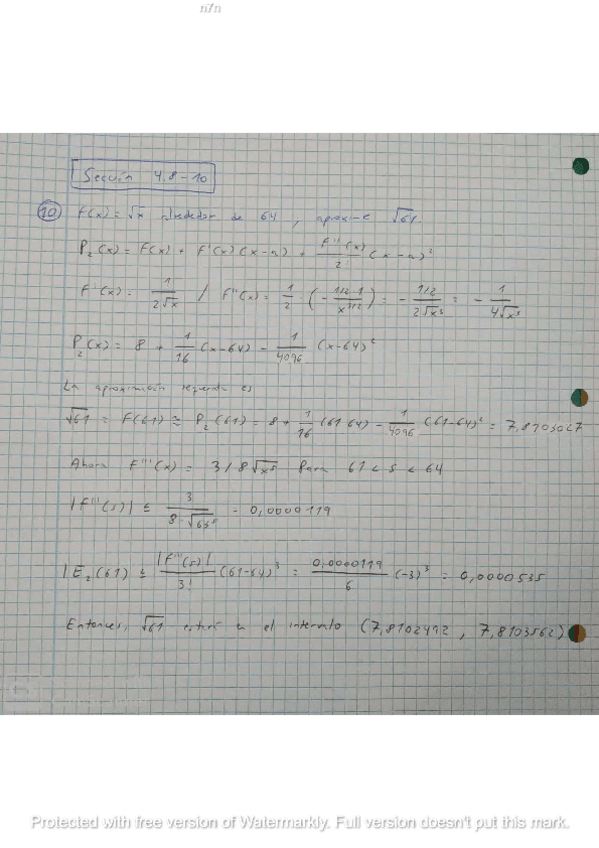 n7n
Sección 4,8-10
10 F(x) = √x alrededor de 64, aproxime √61.
P₂(x) = F(x) + F'(x)(x-a) + F''(x)/2 (x-a)²
F'(x) = 1/(2√x) / F''(x) = 1/2 · (- 1/2·1/x^(3/2)) = - (1/2)/(2√x³) = - 1/(4√x³)
P₂(x) = 8 + 1/16 (x-64) - 1/4096 (x-64)²
La aproximación requerida es
√61 = F(61) ≅ P₂(61) = 8 + 1/16 (61-64) - 1/4096 (61-64)² = 7,8103027
Ahora F'''(x) = 3/8√x⁵ para 61 < s < 64
|F'''(s)| ≤ 3/(8·√63⁵) = 0,0000119
|E₂(61) ≤ |F'''(s)|/3! (61-64)³ = 0,0000119/6 (-3)³ = 0,0000535
Entonces, √61 estará en el intervalo (7,8102492, 7,8103562)
Protected with free version of Watermarkly. Full version doesn't put this mark.